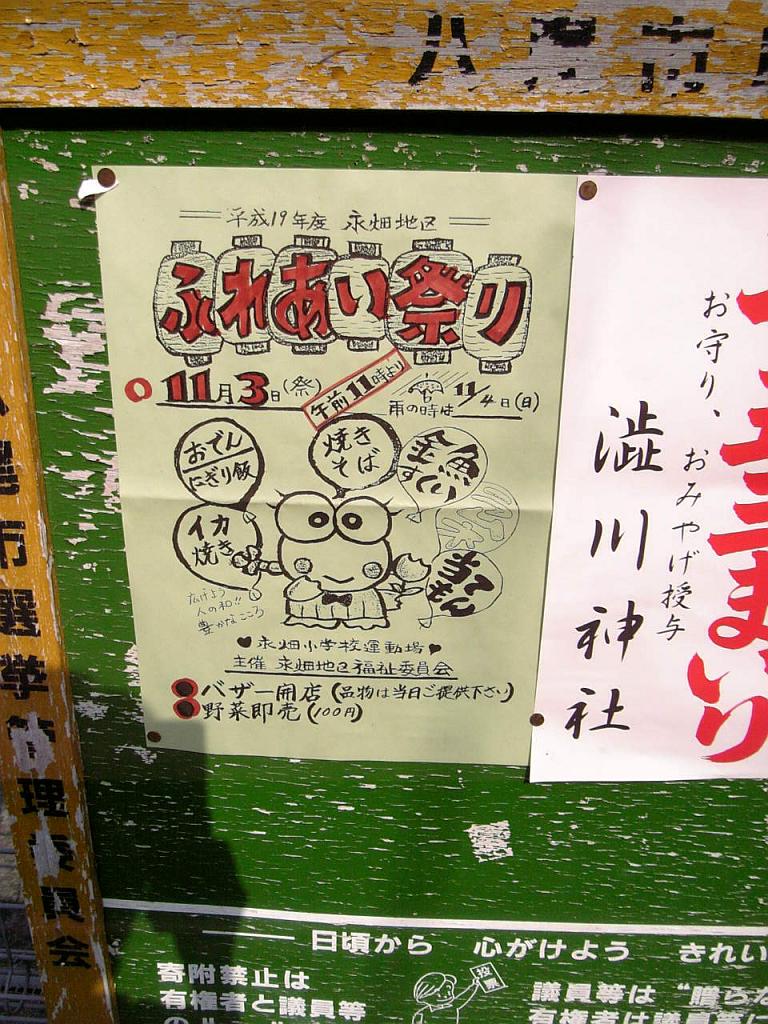 平成19年度 永畑地区
ふれあい祭り
11月3日(祭)
午前11時より
雨の時は 11/4日(日)
おでん
にぎり飯
焼き
そば
金魚
すくい
イカ
焼き
当て
もん
広げよう
人の和!!
豊かなこころ
♥ 永畑小学校運動場 ♥
主催 永畑地区福祉委員会
バザー開店(品物は当日ご提供下さい)
野菜即売(100円)
まいり
お守り、おみやげ授与
澁川神社
尾市選挙管理委員会
日頃から 心がけよう きれい
寄附禁止は
有権者と議員等
投票
議員等は "贈らな
有権者は議員等に